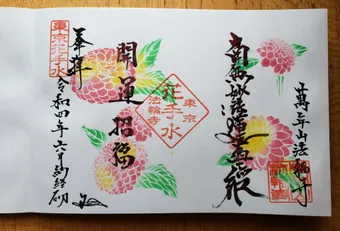 萬年山法輪寺
南無妙法蓮華経
東京
花手水
法輪寺
開運招福
東京花手水
奉拝
令和四年六月